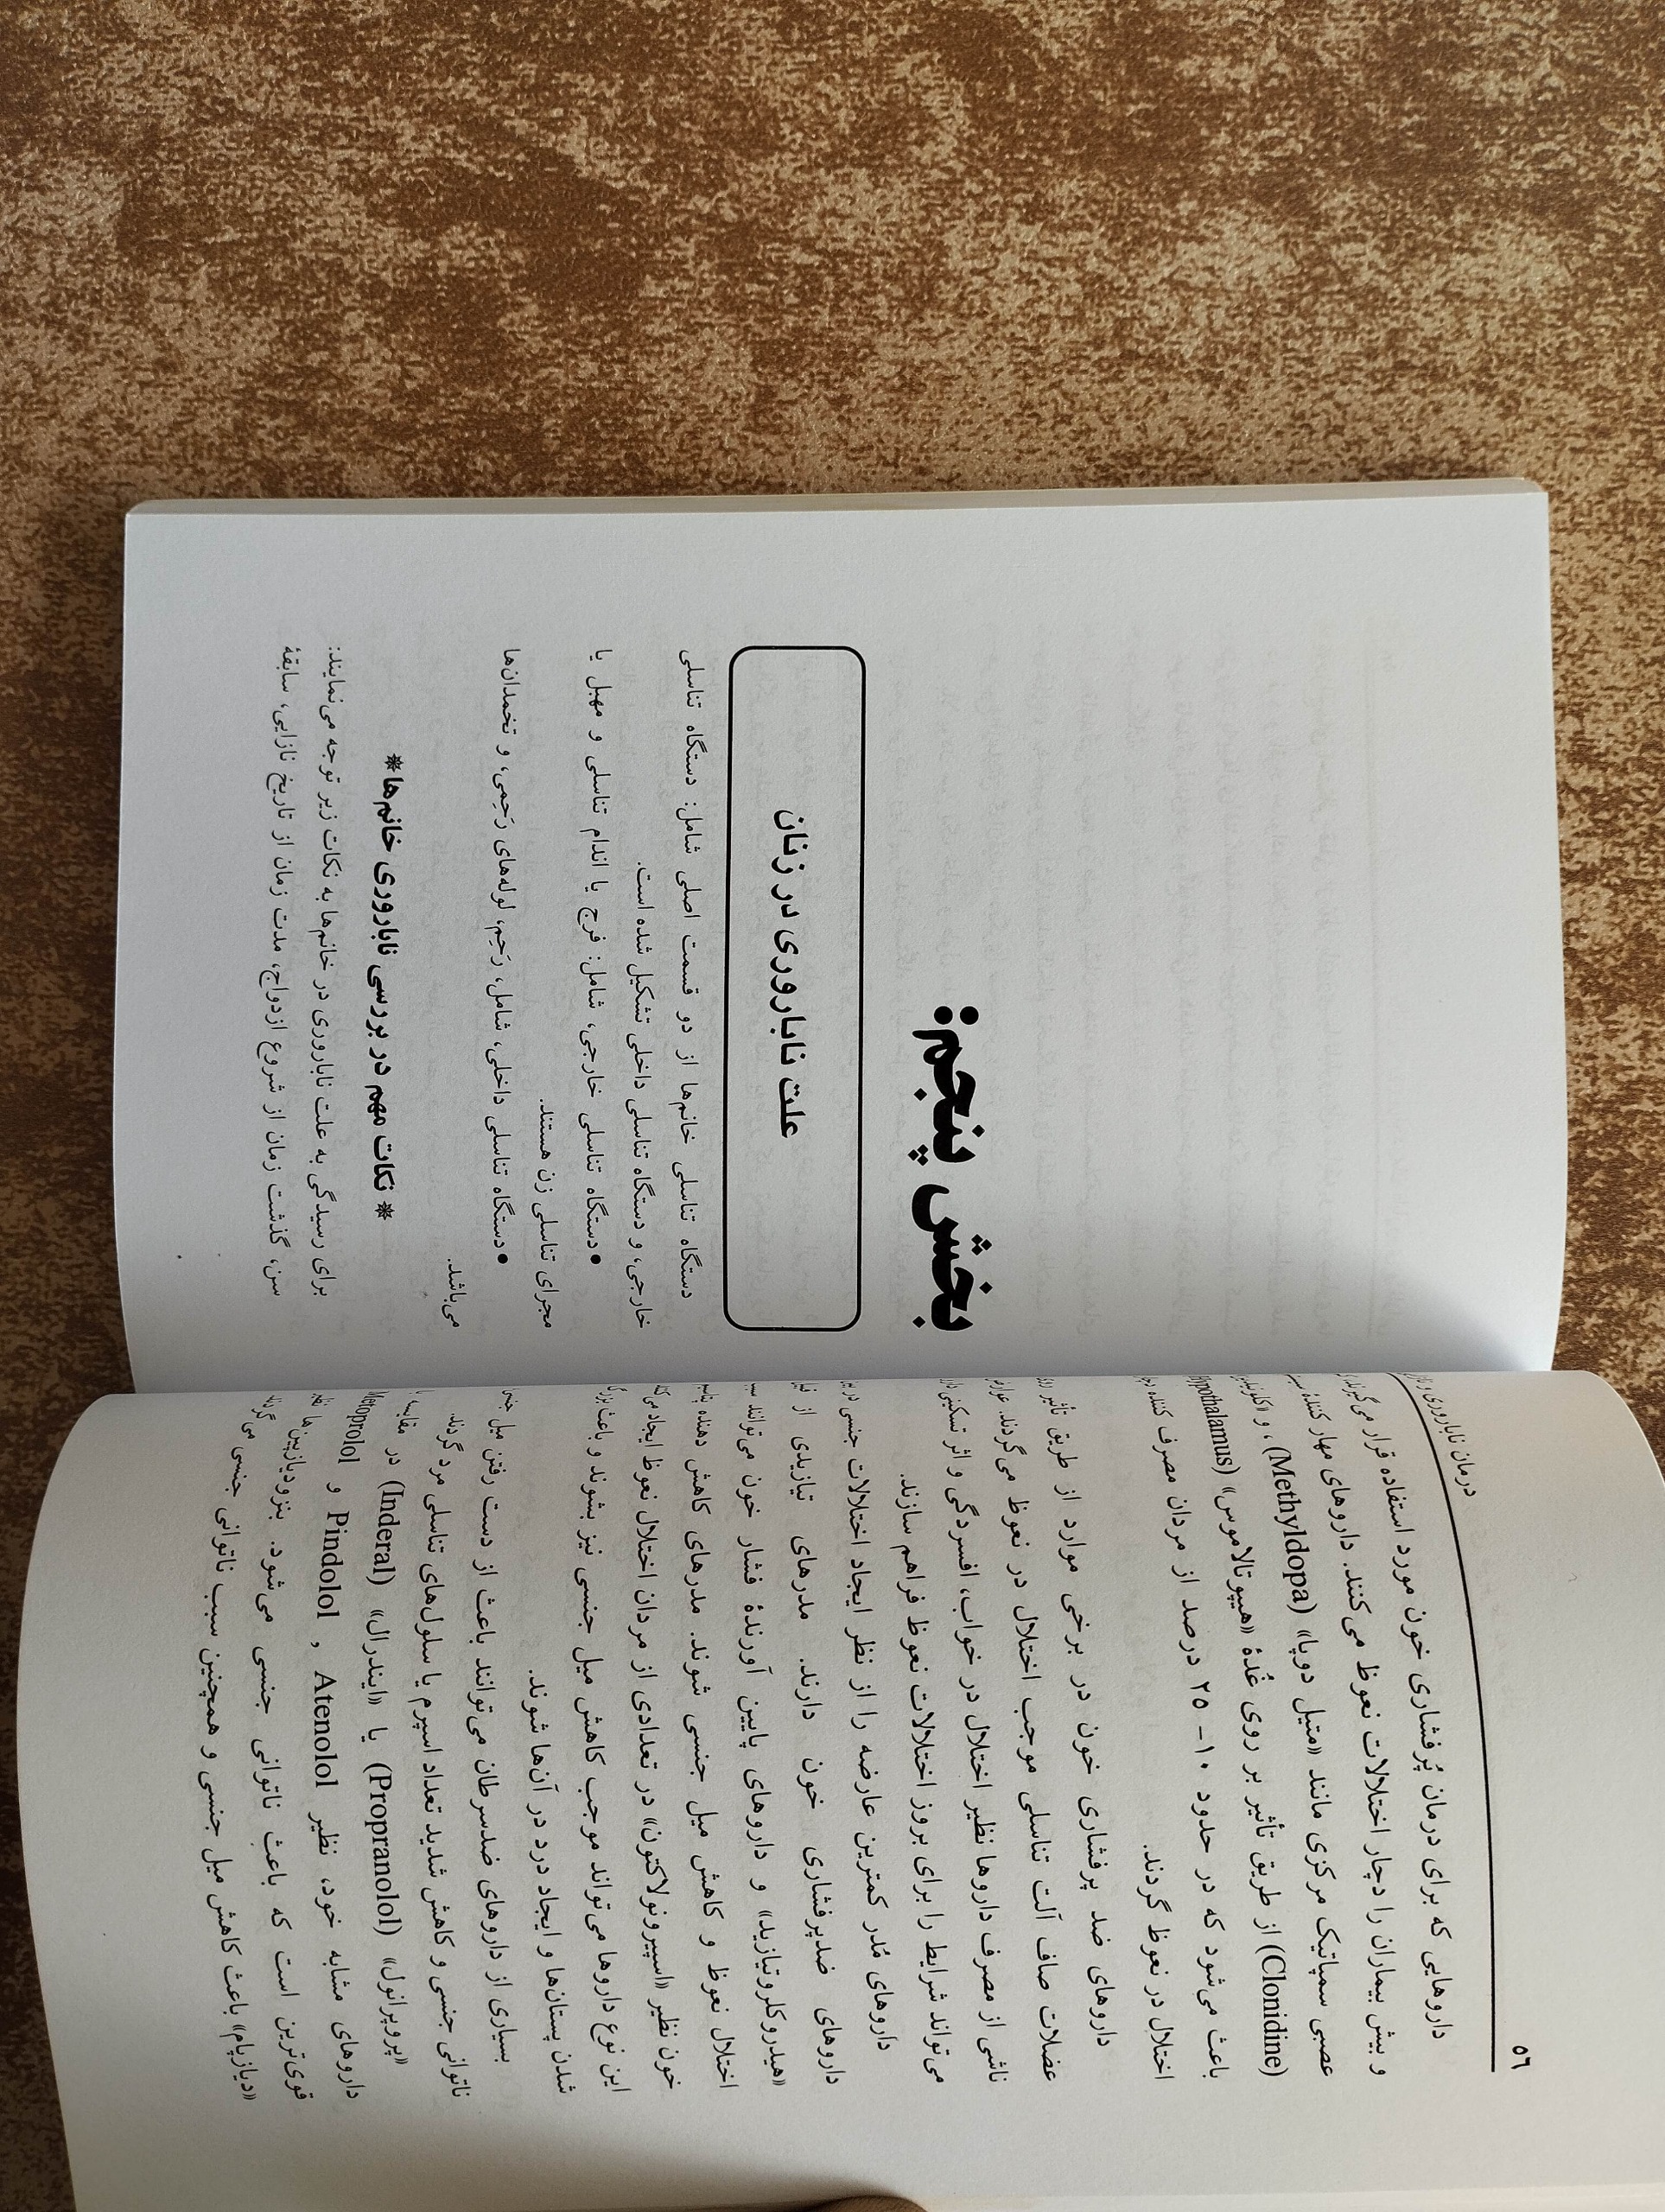 ٥٦
درمان ناباروری و
داروهایی که برای درمان پُرفشاری خون مورد استفاده قرار می‌گیرند،
و بیش بیماران را دچار اختلالات نعوظ می‌کنند. داروهای مهار کنندهٔ
عصبی سمپاتیک مرکزی مانند «متیل دوپا» (Methyldopa)، و
(Clonidine) از طریق تأثیر بر روی غُدهٔ «هیپوتالاموس» (hypothalamus)
باعث می‌شود که در حدود ۱۰ – ۲۵ درصد از مردان مصرف کننده
اختلال در نعوظ گردند.
داروهای ضد پرفشاری خون در برخی موارد از طریق تأثیر
عضلات صاف آلت تناسلی موجب اختلال در نعوظ می‌گردند.
ناشی از مصرف داروها نظیر اختلال در خواب، افسردگی و اثر تسکینی
می‌تواند شرایط را برای بروز اختلالات نعوظ فراهم سازند.
داروهای مُدر کمترین عارضه را از نظر ایجاد اختلالات جنسی در
داروهای ضدپرفشاری خون دارند. مدرهای تیازیدی از
«هیدروکلروتیازید» و داروهای پایین آورندهٔ فشار خون می‌توانند
اختلال نعوظ و کاهش میل جنسی شوند. مدرهای کاهش دهنده
خون نظیر «اسپیرونولاکتون» در تعدادی از مردان اختلال نعوظ ایجاد
این نوع داروها می‌تواند موجب کاهش میل جنسی نیز بشوند و باعث
شدن پستان‌ها و ایجاد درد در آن‌ها شوند.
بسیاری از داروهای ضدسرطان می‌توانند باعث از دست رفتن میل
ناتوانی جنسی و کاهش شدید تعداد اسپرم یا سلول‌های تناسلی مرد گردند.
«پروپرانول» (Propranolol) یا «ایندرال» (Inderal) در مقایسه
داروهای مشابه خود، نظیر Atenolol و Pindolol و Metoprolol
قوی‌ترین است که باعث ناتوانی جنسی می‌شود. بنزودیازپین‌ها
«دیازپام» باعث کاهش میل جنسی و همچنین سبب ناتوانی جنسی
بخش پنجم:
علت ناباروری در زنان
دستگاه تناسلی خانم‌ها از دو قسمت اصلی شامل: دستگاه تناسلی
خارجی، و دستگاه تناسلی داخلی تشکیل شده است.
● دستگاه تناسلی خارجی، شامل: فرج یا اندام تناسلی و مهبل یا
مجرای تناسلی زن هستند.
● دستگاه تناسلی داخلی، شامل، رَحِم، لوله‌های رَحِمی، و تخمدان‌ها
می‌باشد.
❋ نکات مهم در بررسی ناباروری خانم‌ها ❋
برای رسیدگی به علت ناباروری در خانم‌ها به نکات زیر توجه می‌نمایند:
سن، گذشت زمان از شروع ازدواج، مدت زمان از تاریخ نازایی، سابقهٔ